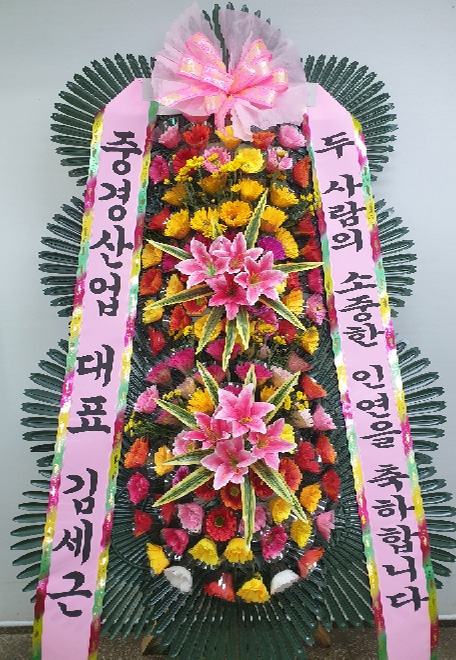 중경산업 대표 김세근
두 사람의 소중한 인연을 축하합니다